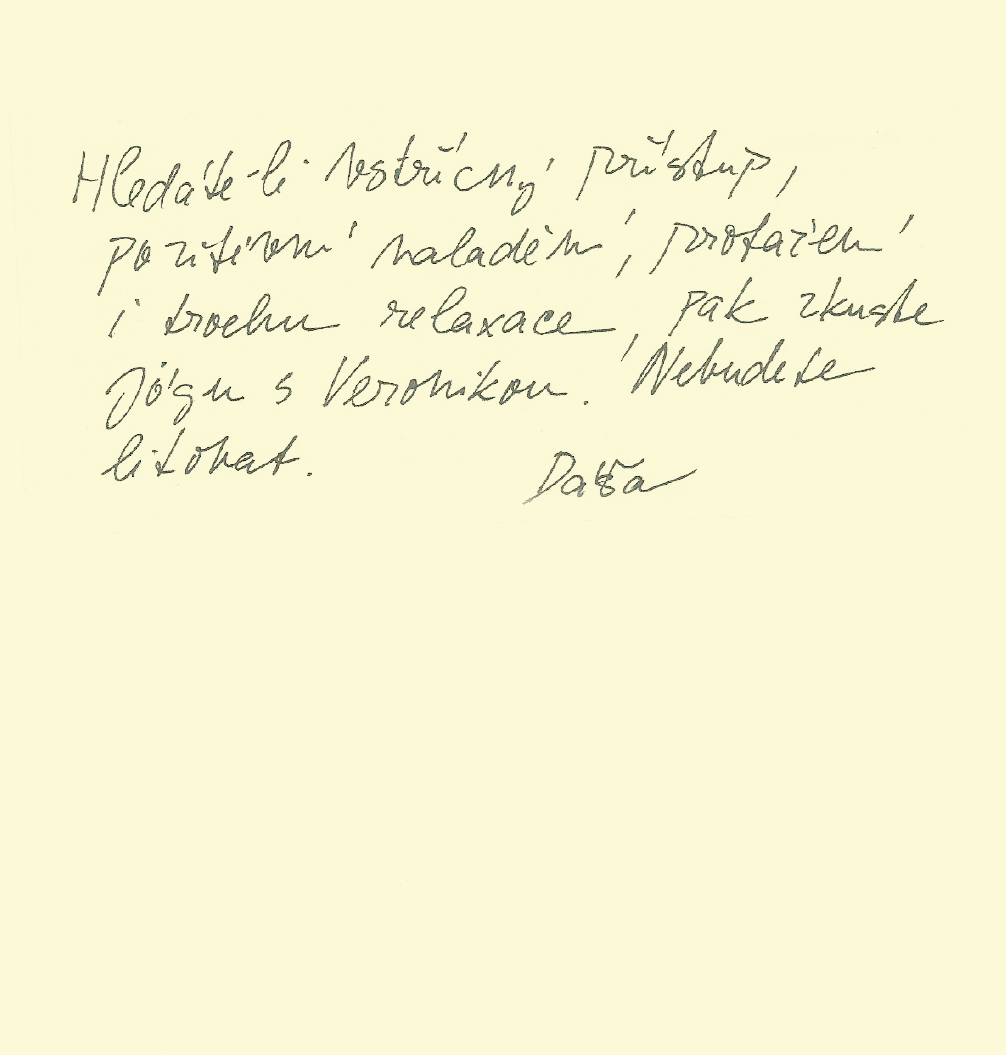 Hledáte-li vstřícný přístup,
pozitivní naladění, protažení
i trochu relaxace, pak zkuste
jógu s Veronikou. Nebudete
litovat.
Dáša